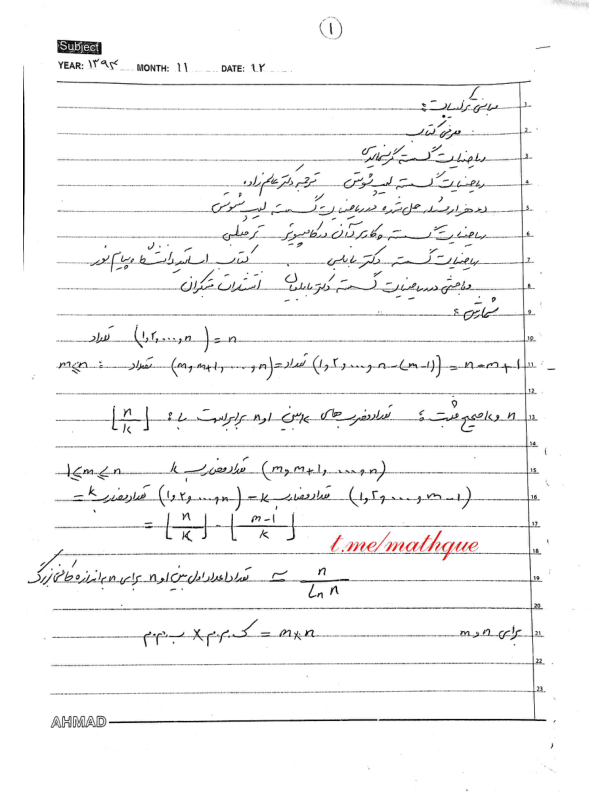 ۱
Subject
YEAR: ۱۳۹۳ MONTH: ۱۱ DATE: ۱۲
مبانی ترکیبیات:
معرفی کتاب
ریاضیات گسسته گریمالدی
ریاضیات گسسته لیپ شوتس ترجمه دکتر عالم زاده
دو هزار مسئله حل شده در ریاضیات گسسته لیپ شوتس
ریاضیات گسسته و کاربرد آن در کامپیوتر
ریاضیات گسسته دکتر بابلی کتاب اساتید دانشگاه پیام نور
مباحثی در ریاضیات گسسته دکتر بابلیان انتشارات مبتکران
شمارش:
تعداد (۱,۲,...,n) = n
m≤n : تعداد (m,m+1,...,n) = تعداد (۱,۲,...,n-(m-1)) = n-m+1
n و k صحیح مثبت: تعداد مضرب های k بین ۱ و n برابر است با: ⌊n/k⌋
1≤m≤n تعداد مضرب k (m,m+1,...,n)
= تعداد مضارب k (۱,۲,...,n) - تعداد مضارب k (۱,۲,...,m-1)
= ⌊n/k⌋ - ⌊m-1/k⌋
t.me/mathque
تعداد اعداد اول بین ۱ و n برای n به اندازه کافی بزرگ ≃ n/Ln n
برای m و n ب.م.م × ک.م.م = m×n
AHMAD